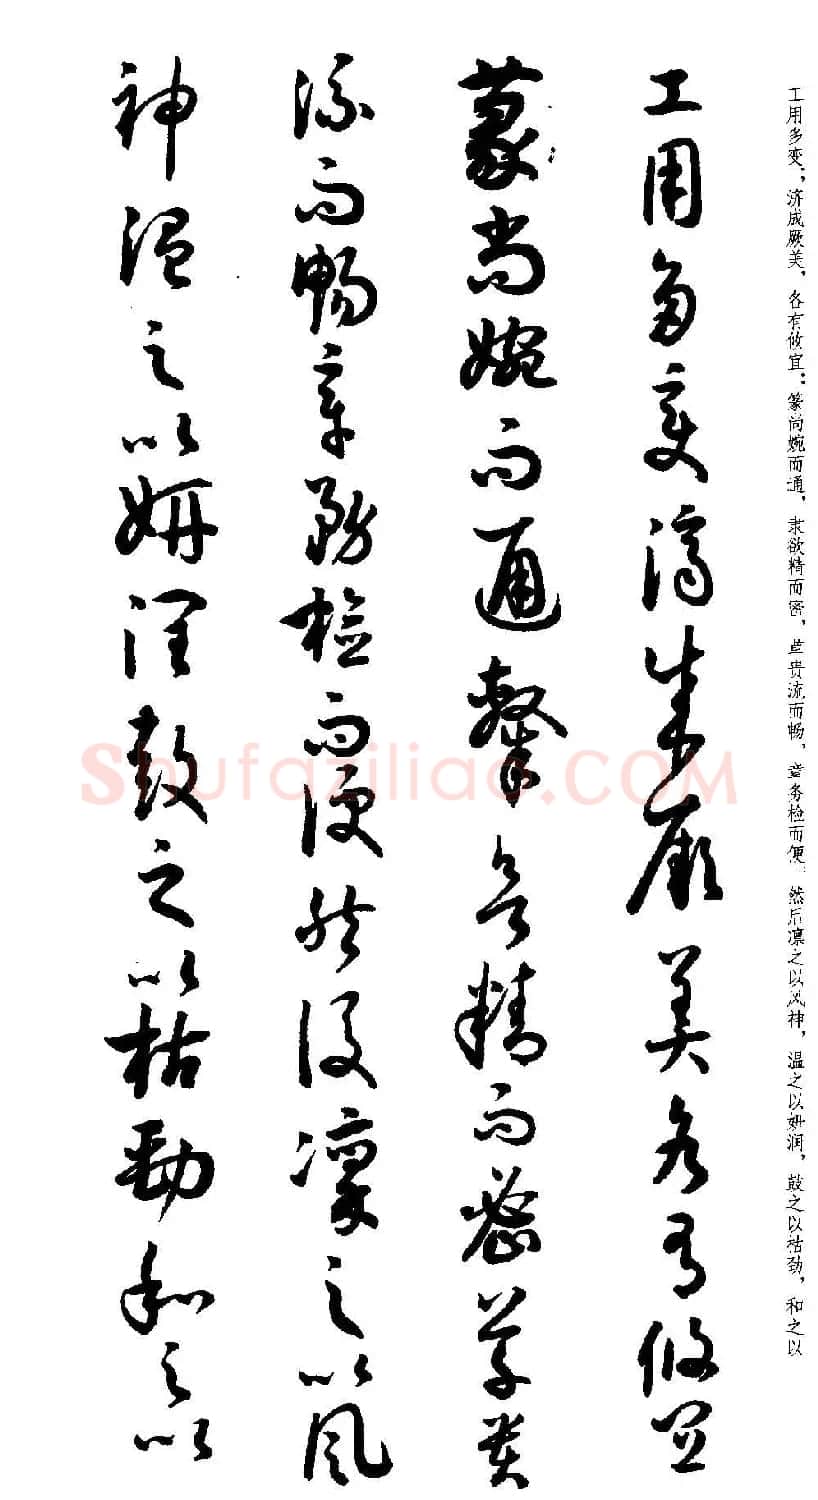 工用多变；济成厥美，各有攸宜：篆尚婉而通，隶欲精而密，草贵流而畅，章务检而便，然后凛之以风神，温之以妍润，鼓之以枯劲，和之以
工用多变济成厥美各有攸宜
篆尚婉而通隶欲精而密草贵
流而畅章务检而便然后凛之以风
神温之以妍润鼓之以枯劲和之以
Shufaziliao.COM